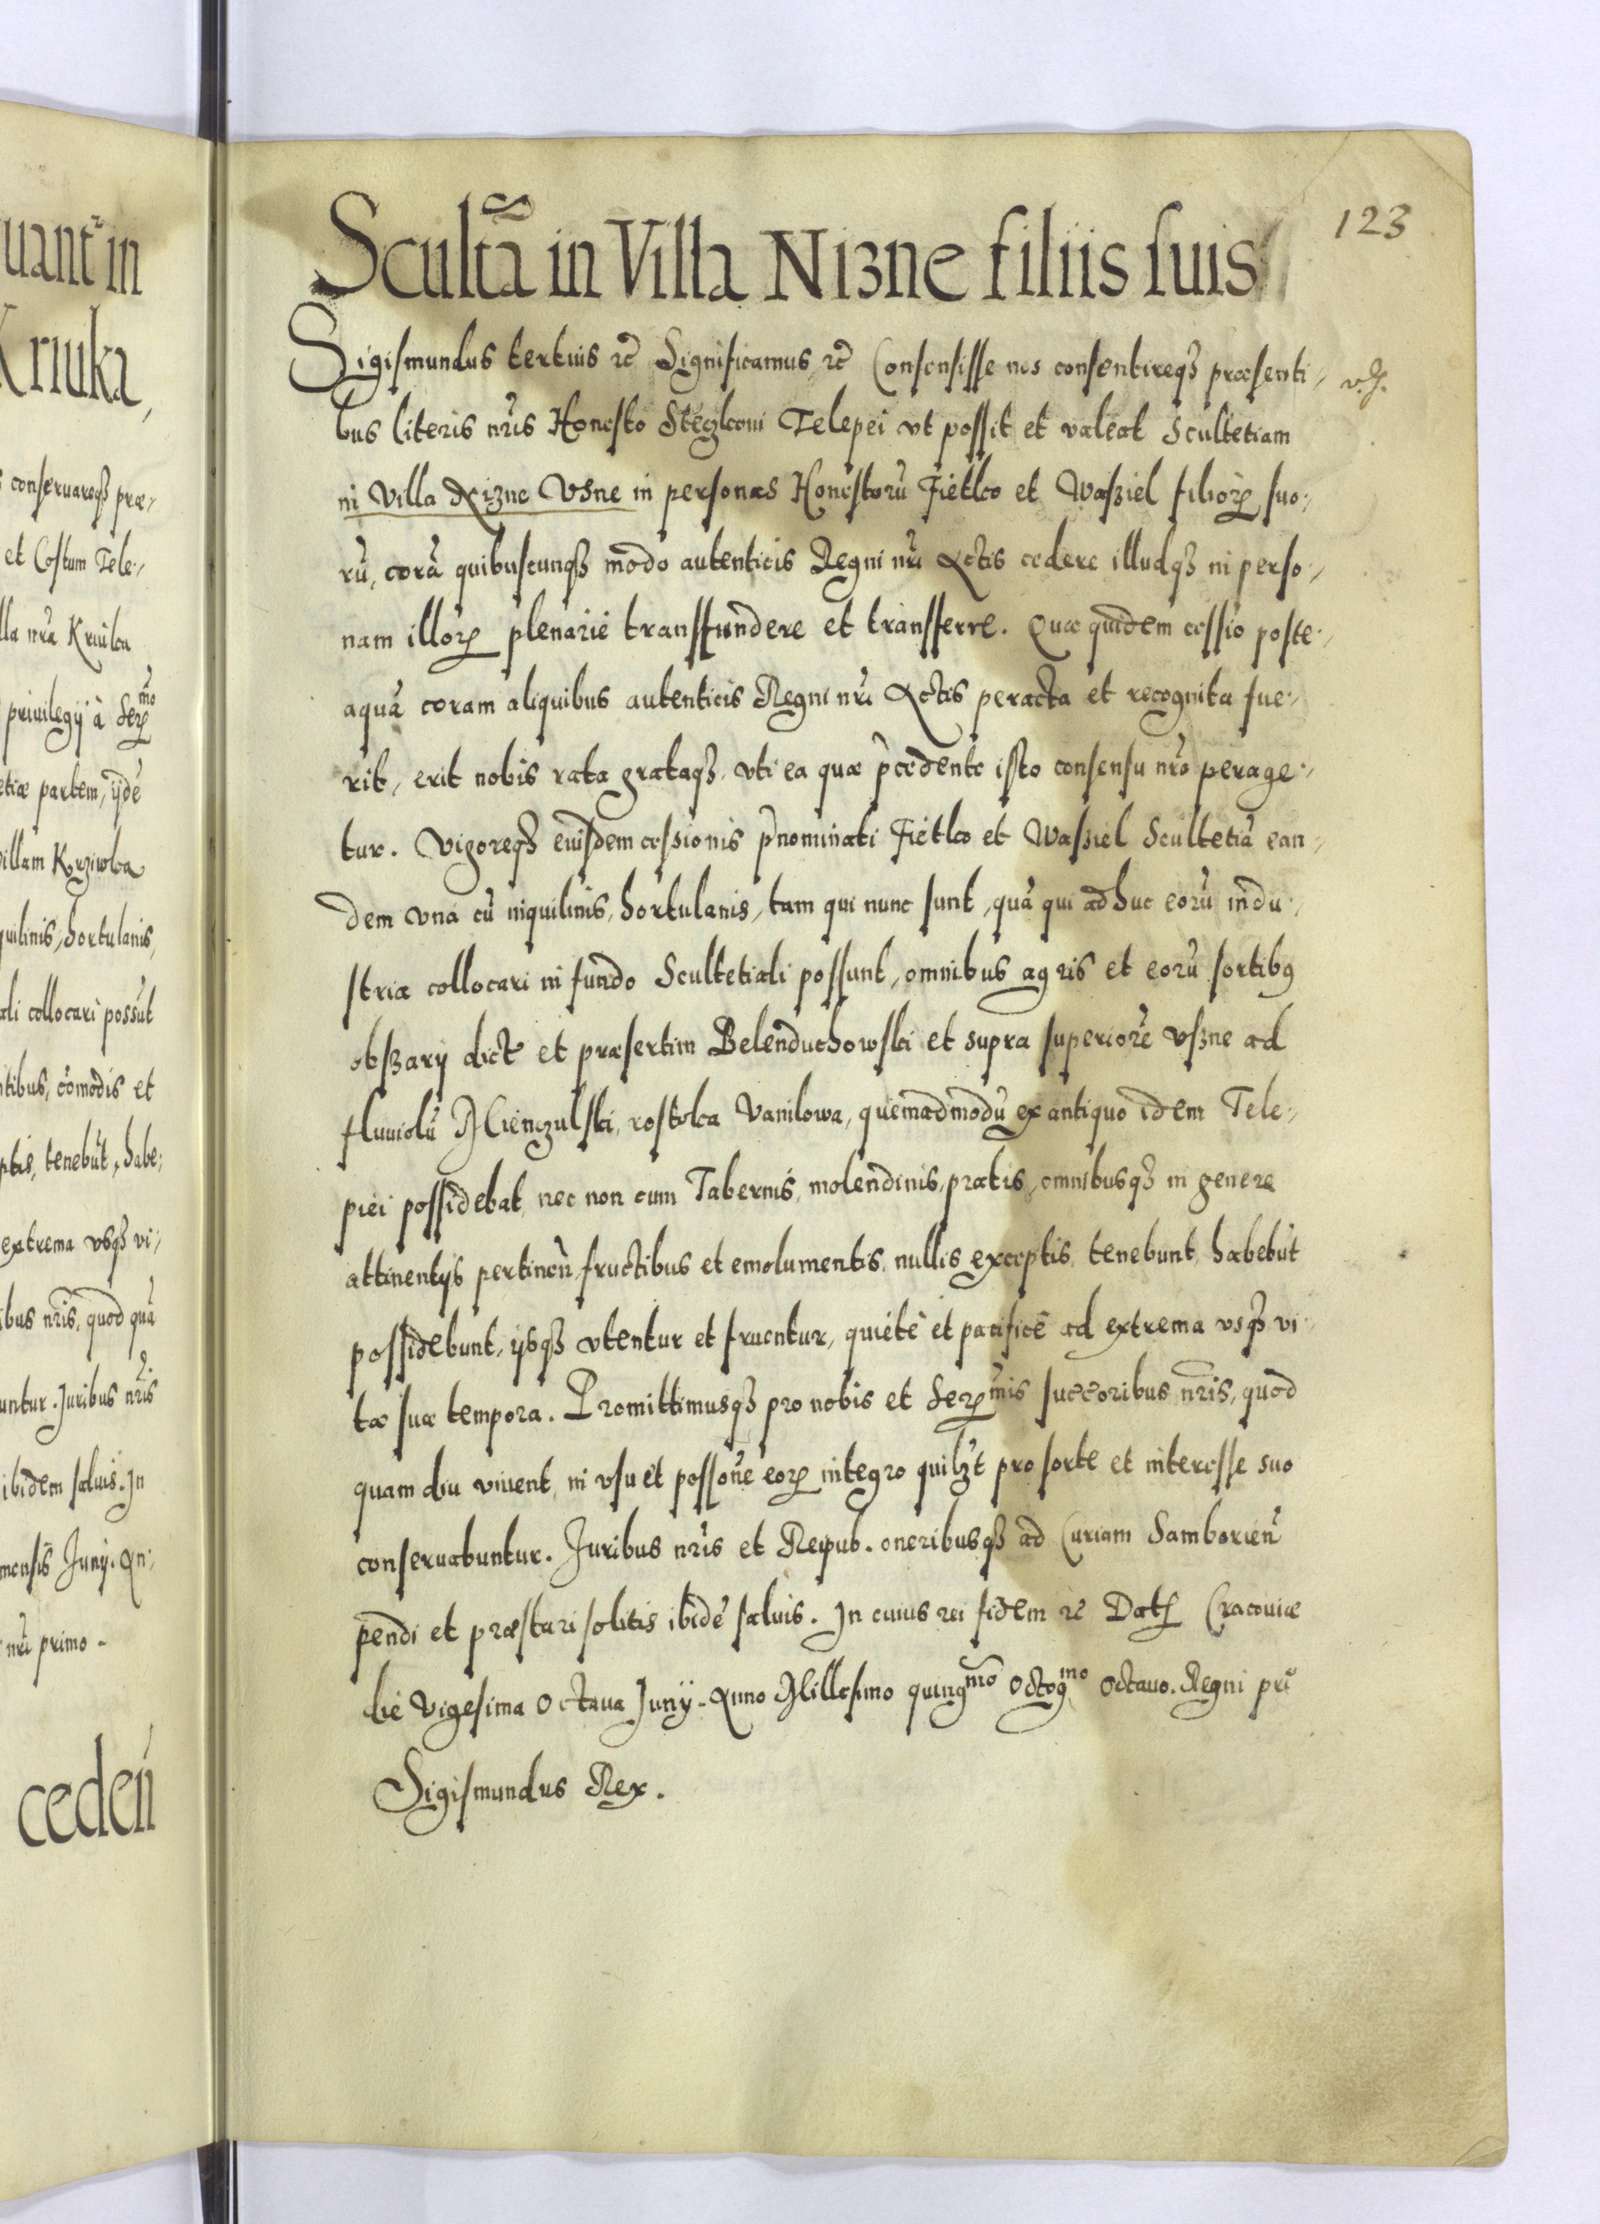 uant in
Kriuka,
conseruareqꝫ præ-
et Costum Tele-
lla nrã Kriulca
priuilegÿ à Serꝫmo
etiæ partem, ÿdẽ
villam Krziwlca
quilinis, hortulanis,
ali collocari possũt
ntibus, cõmodis et
ptis, tenebũt, habe-
extrema vsqꝫ vi-
ibus nrĩs, quod quã
untur. Juribus nrĩs
ibidem saluis. In
mensis Junÿ. An-
nrĩ primo.
cedeñ
123
Scultã in Villa Nizne filiis suis
Sigismundus tertius ꝛc̃ Significamus, ꝛc̃ Consensisse nos consentireqꝫ præsenti-
bus literis nrĩs Honesto Steczkoni Telepei vt possit et valeat Scultetiam
in villa Nizne Vsne in personas Honestorũ Fietko et Wasziel filioꝝ suo-
rũ, corã quibuscunqꝫ modo autenticis Regni nrĩ Actis cedere illudqꝫ in perso-
nam illoꝝ plenariè transfundere et transferre. Quæ quidem cessio poste-
aquã coram aliquibus autenticis Regni nrĩ Actis peracta et recognita fue-
rit, erit nobis rata grataqꝫ, vti ea quæ p̃cedente isto consensu nrõ perage-
tur. Vigoreqꝫ eiusdem cessionis p̃nominati Fietko et Wasziel Scultetiã ean-
dem vnà cũ inquilinis, hortulanis, tam qui nunc sunt, quã qui adhuc eorũ indu-
stria collocari in fundo Scultetiali possunt, omnibus agris et eorũ sortibꝰ
obszarÿ dict et præsertim Belenduchowski et supra superiorẽ vszne ad
fluuiolũ Mienczulski, rostoka Vanilowa, quemadmodũ ex antiquo idem Tele-
piei possidebat, nec non cum Tabernis, molendinis, pratis, omnibusqꝫ in genere
attinentÿs pertineñ fructibus et emolumentis, nullis exceptis, tenebunt, habebũt
possidebunt, ÿsqꝫ vtentur et fruentur, quietè et pacificè ad extrema vsqꝫ vi-
tæ suæ tempora. Promittimusqꝫ pro nobis et Serꝫmis succoribus nrĩs, quod
quam diu viuent, in vsu et possoñe eoꝝ integro quilꝫt pro sorte et interesse suo
conseruabuntur. Juribus nrĩs et Reipub. oneribusqꝫ ad Curiam Samborieñ
pendi et præstari solitis ibidẽ saluis. In cuius rei fidem ꝛc̃ Datꝫ Cracouiæ
die Vigesima Octaua Junÿ. Anno Millesimo quingmo Octogmo Octauo. Regni prĩ
Sigismundus Rex.